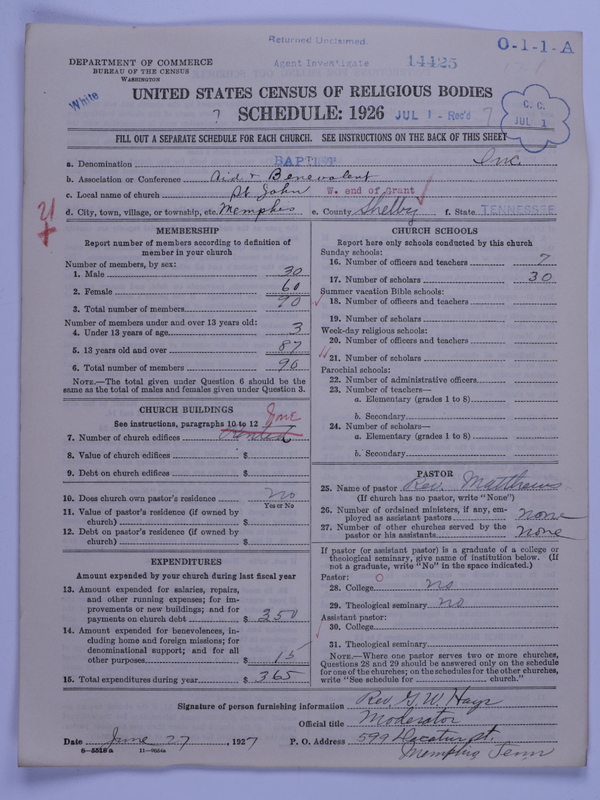 Returned Unclaimed.
Agent Investigate
14425
O-1-1-A
DEPARTMENT OF COMMERCE
BUREAU OF THE CENSUS
WASHINGTON
White
UNITED STATES CENSUS OF RELIGIOUS BODIES
? SCHEDULE: 1926 JUL 1 - Rec'd 7
C. C.
JUL 1
FILL OUT A SEPARATE SCHEDULE FOR EACH CHURCH. SEE INSTRUCTIONS ON THE BACK OF THIS SHEET
a. Denomination BAPTIST Inc.
b. Association or Conference Aid & Benevolent
c. Local name of church St John W. end of Grant
d. City, town, village, or township, etc. Memphis e. County Shelby f. State TENNESSEE
MEMBERSHIP
Report number of members according to definition of
member in your church
Number of members, by sex:
1. Male 30
2. Female 60
3. Total number of members 90
Number of members under and over 13 years old:
4. Under 13 years of age 3
5. 13 years old and over 87
6. Total number of members 90
NOTE.—The total given under Question 6 should be the
same as the total of males and females given under Question 3.
CHURCH BUILDINGS
See instructions, paragraphs 10 to 12
7. Number of church edifices Rented
8. Value of church edifices $
9. Debt on church edifices $
10. Does church own pastor's residence no
Yes or No
11. Value of pastor's residence (if owned by
church) $
12. Debt on pastor's residence (if owned by
church) $
EXPENDITURES
Amount expended by your church during last fiscal year
13. Amount expended for salaries, repairs,
and other running expenses; for im-
provements or new buildings; and for
payments on church debt $ 350
14. Amount expended for benevolences, in-
cluding home and foreign missions; for
denominational support; and for all
other purposes $ 15
15. Total expenditures during year $ 365
CHURCH SCHOOLS
Report here only schools conducted by this church
Sunday schools:
16. Number of officers and teachers 7
17. Number of scholars 30
Summer vacation Bible schools:
18. Number of officers and teachers
19. Number of scholars
Week-day religious schools:
20. Number of officers and teachers
21. Number of scholars
Parochial schools:
22. Number of administrative officers
23. Number of teachers—
a. Elementary (grades 1 to 8)
b. Secondary
24. Number of scholars—
a. Elementary (grades 1 to 8)
b. Secondary
PASTOR
25. Name of pastor Rev. Matthews
(If church has no pastor, write "None")
26. Number of ordained ministers, if any, em-
ployed as assistant pastors none
27. Number of other churches served by the
pastor or his assistants none
If pastor (or assistant pastor) is a graduate of a college or
theological seminary, give name of institution below. (If
not a graduate, write "No" in the space indicated.)
Pastor:
28. College no
29. Theological seminary no
Assistant pastor:
30. College
31. Theological seminary
NOTE.—Where one pastor serves two or more churches,
Questions 28 and 29 should be answered only on the schedule
for one of the churches; on the schedules for the other churches,
write "See schedule for church."
Signature of person furnishing information Rev. G. W. Hays
Official title Moderator
Date June 27, 1927 P. O. Address 599 Decatur st.
Memphis Tenn
8-5518a 11-9554a